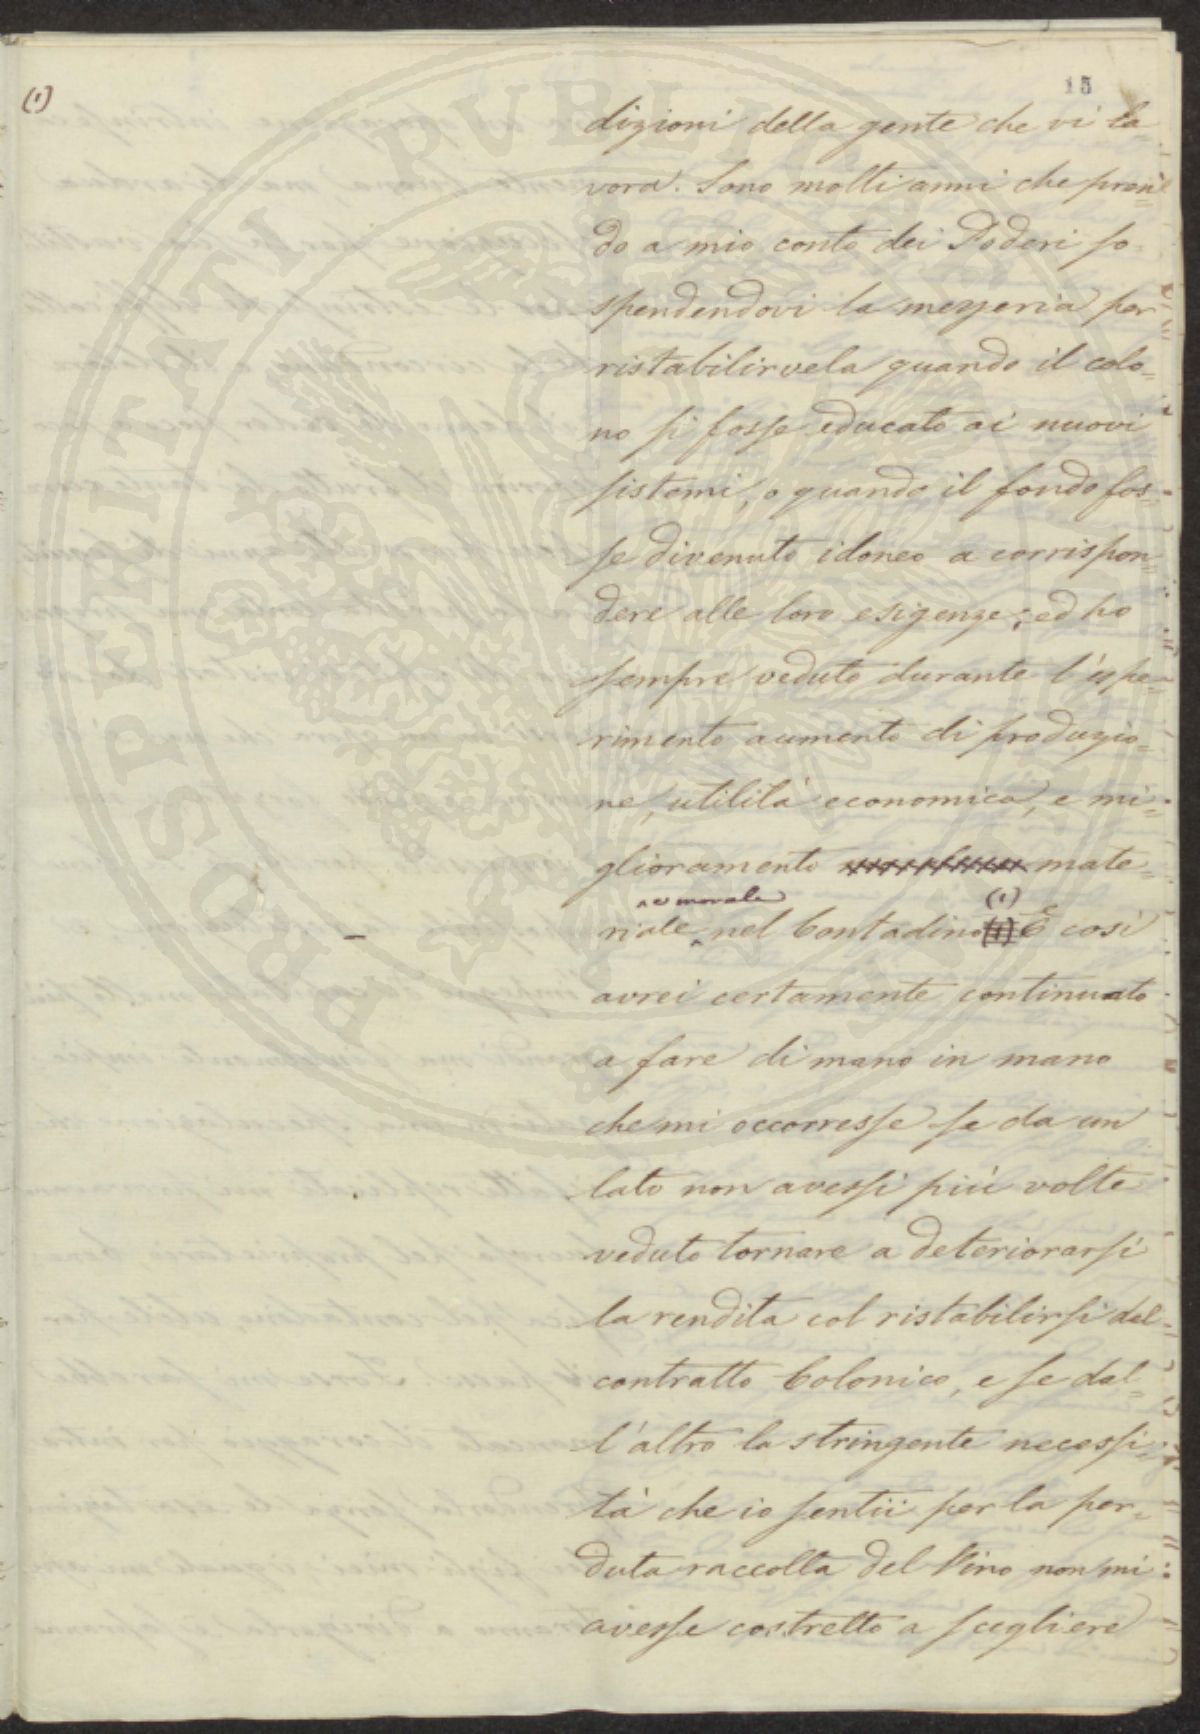 15
(1)
dizioni della gente che vi la-
vora. Sono molti anni che pren-
do a mio conto dei Poderi so-
spendendovi la mezzeria per
ristabilirvela quando il colo-
no si fosse educato ai nuovi
sistemi, o quando il fondo fos-
se divenuto idoneo a corrispon-
dere alle loro esigenze; ed ho
sempre veduto durante l'espe-
rimento aumento di produzio-
ne, utilità economica, e mi-
glioramento mate-
e morale (1)
riale nel Contadino (1) E così
avrei certamente continuato
a fare di mano in mano
che mi occorresse se da un
lato non avessi più volte
veduto tornare a deteriorarsi
la rendita col ristabilirsi del
contratto Colonico, e se dal-
l'altro la stringente necessi-
tà che io sentii per la per-
duta raccolta del Vino non mi
avesse costretto a scegliere
PUBLICAE PROSPERITATI